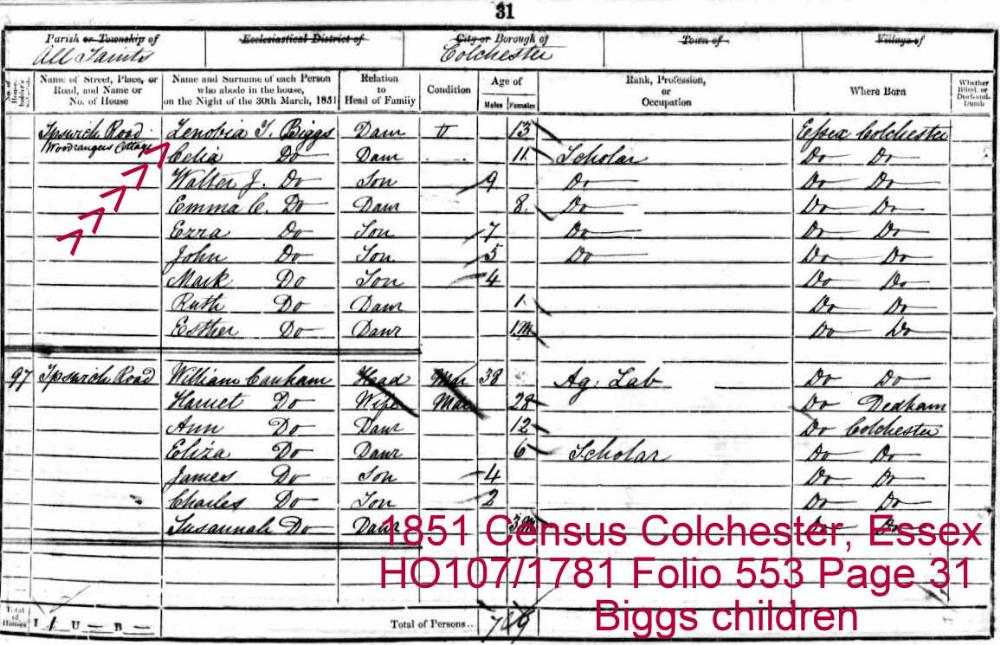 31
Parish or Township of Ecclesiastical District of City or Borough of Town of Village of
All Saints Colchester
Name of Street, Place, or Road, and Name or No. of House Name and Surname of each Person who abode in the house, on the Night of the 30th March, 1851 Relation to Head of Family Condition Age of Males Females Rank, Profession, or Occupation Where Born Whether Blind, or Deaf-and-Dumb
Ipswich Road Zenobia T. Biggs Daur U 13 Essex Colchester
Woodrangers Cottage
Celia Do Daur 11 Scholar Do Do
Walter J. Do Son 9 Do Do Do
Emma C. Do Daur 8 Do Do Do
Ezra Do Son 7 Do Do Do
John Do Son 5 Do Do Do
Mark Do Son 4 Do Do
Ruth Do Daur 1 Do Do
Esther Do Daur 1m Do Do
97 Ipswich Road William Canham Head Mar 38 Ag. Lab Do Do
Harriet Do Wife Mar 28 Do Dedham
Ann Do Daur 12 Do Colchester
Eliza Do Daur 6 Scholar Do Do
James Do Son 4 Do Do
Charles Do Son 2 Do Do
Susannah Do Daur 3m Do Do
1851 Census Colchester, Essex
HO107/1781 Folio 553 Page 31
Biggs children
Total of Houses I 1 U — B — Total of Persons... 7 9